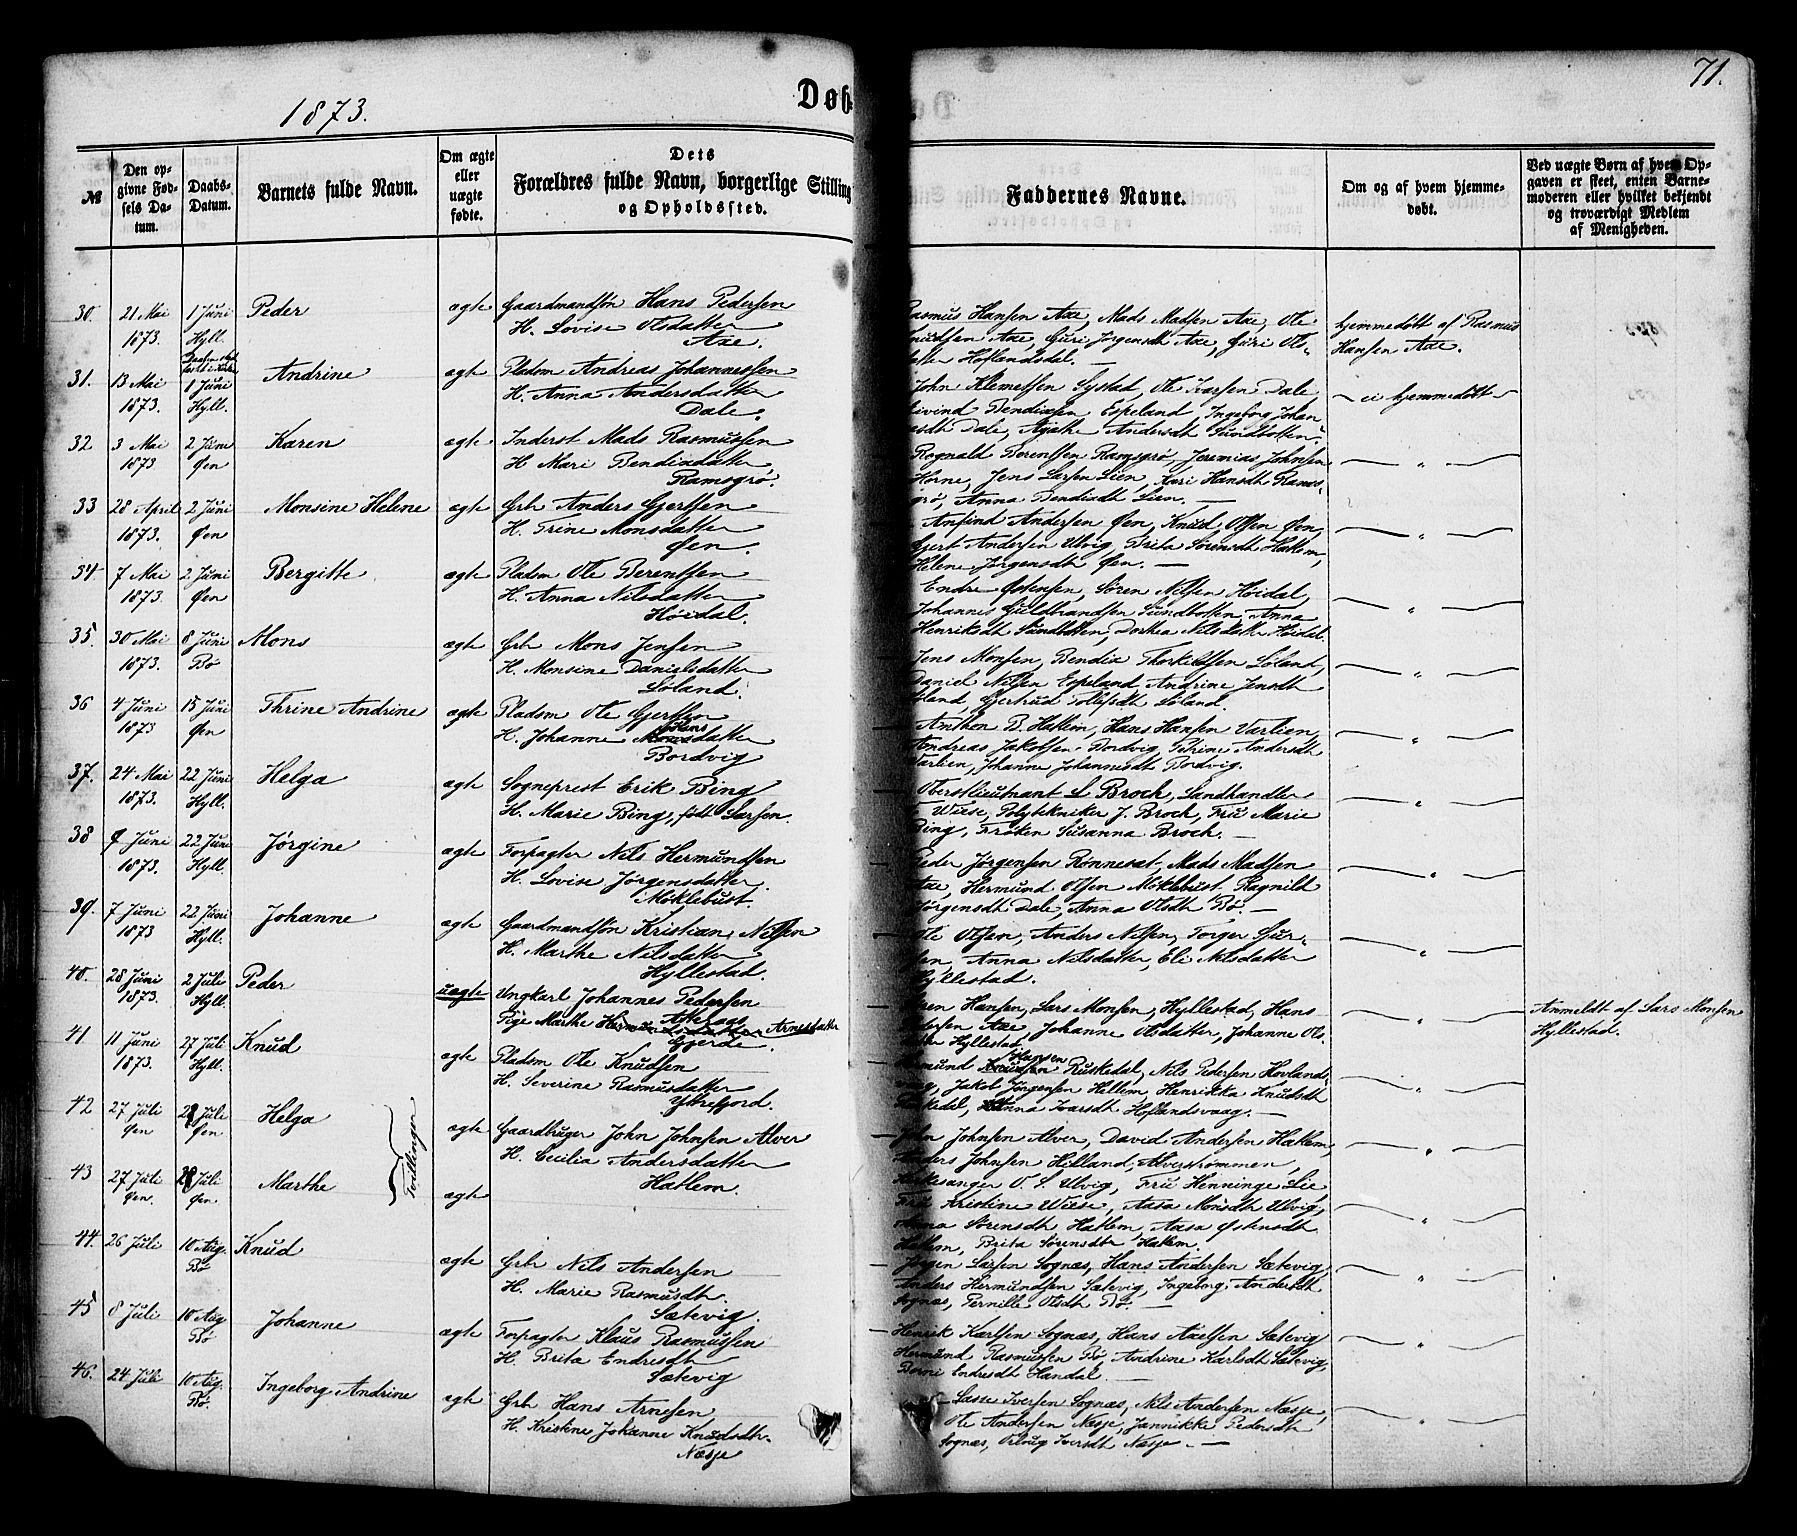 1873.
Døb
71.
№
Den opgivne Fødsels Datum.
Daabs-Datum.
Barnets fulde Navn.
Om ægte eller uægte fødte.
Dets Forældres fulde Navn, borgerlige Stilling og Opholdssted.
Faddernes Navne.
Om og af hvem hjemmedøbt.
Ved uægte Børn af hvem Opgaven er skeet, enten Barnemoderen eller hvilket bekjendt og troværdigt Medlem af Menigheden.
30. 21 Mai 1 Juni Peder ægte Gaardmandsøn Hans Pedersen
1873. Hyll. H. Lovise Olsdatter
Axe.
Rasmus Hansen Axe, Mads Madsen Axe, Ole
Knudsen Axe, Guri Jørgensdt Axe, Guri Ols-
datter Hoflandsdal. —
hjemmedøbt af Rasmus
Hansen Axe.
31. 13 Mai 1 Juni Andrine ægte Pladsm Andreas Johannessen
1873. Hyll. H. Anna Andersdatter
Dale.
John Klemetsen Systad, Ole Ivarsen Dale,
Eivind Bendixsen Espeland, Ingeborg Johan-
nsdt Dale, Agathe Andersdt Sundbotten.
— ei hjemmedøbt —
32 3 Mai 2 Juni Karen ægte Inderst Mads Rasmussen
1873 Øen H. Mari Bendixdatter
Ramsgrø.
Rognald Berentsen Ramsgrø, Jeremias Johnsen
Horne, Jens Larsen Lien, Kari Hansdt Rams-
grø, Anna Bendixdt Lien. —
— " —
33 28 April 2 Juni Monsine Helene ægte Grb Anders Gjertsen
1873. Øen H. Trine Monsdatter
Øen.
Anfind Andersen Øen, Knud Olsen Øen,
Gjert Andersen Ulvig, Brita Sørensdt Hatlem,
Helene Jørgensdt Øen. —
— " —
34 7 Mai 2 Juni Bergitte ægte Pladsm Ole Berentsen
1873. Øen H. Anna Nilsdatter
Høidal.
Endre Østensen, Søren Nilsen Høidal,
Johannes Guldbrandsen Sundbotten, Anna
Henriksdt Sundbotten, Dorthea Nilsdatter Høidal.
— " —
35 30 Mai 8 Juni Mons ægte Grb Mons Jensen
1873. Bø H. Monsine Danielsdatter
Løland.
Jens Monsen, Bendix Thorkildsen Løland,
Daniel Nilsen Espeland, Andrine Jensdt
Løland, Gjertrud Tollefsdt Løland.
— " —
36 4 Juni 15 Juni Thrine Andrine ægte Pladsm Ole Gjertsen
1873 Øen H. Johanne Hansdatter
Bordvig
Anthon B. Hatlem, Hans Hansen Varlien,
Andreas Jakobsen Bordvig, Trine Andersdt
Varlien, Johanne Johannesdt Bordvig.
— " —
37. 24 Mai 22 Juni Helga ægte Sogneprest Erik Bing
1873. Hyll. H. Marie Bing, født Larsen.
Oberstlieutnant L Broch, Landhandler
Wiese, Polytekniker J. Broch, Fru Marie
Bing, Frøken Susanna Broch. —
— " —
38 9 Juni 22 Juni Jørgine ægte Forpagter Nils Hermundsen
1873. Hyll. H. Lovise Jørgensdatter
Møklebust.
Peder Jørgensen Rønneset, Mads Madsen
Axe, Hermund Olsen Møklebust, Ragnild
Jørgensdt Dale, Anna Olsdt Bø. —
— " —
39. 7 Juni 22 Juni Johanne ægte Gaardmandsøn Kristian Nilsen
1873 Hyll. H. Marthe Nilsdatter
Hyllestad.
Ole Olsen, Anders Nilsen, Torger Sjur-
sen, Anna Nilsdatter, Eli Nilsdatter
Hyllestad.
— " —
40. 28 Juni 2 Juli Peder uægte Ungkarl Johannes Pedersen
1873. Hyll. Pige Marthe Hermundsdatter Arnesdatter
Gjerde.
Hansen, Lars Monsen, Hyllestad, Hans
Pedersen Axe, Johanne Olsdatter, Johanne Ols-
datter Hyllestad.
— " —
Anmeldt af Lars Monsen
Hyllestad.
41 11 Juni 27 Juli Knud ægte Pladsm Ole Knudsen
1873. Hyll. H. Severine Rasmusdatter
Ytrefjord.
Hansen Ruskedal, Nils Pedersen Hovlands-
vaag, Jakob Jørgensen Hellem, Henrikka Knudsdt
Ruskedal, Anna Ivarsdt Hoflandsvaag. —
— " —
42 27 Juli 28 Juli Helga ægte Gaardbruger John Johnsen Alver
Øen Øen H. Cecilia Andersdatter
Hatlem.
Tvillinger
43 27 Juli 28 Juli Marthe ægte
Øen. Øen
John Johnsen Alver, David Andersen Hatlem,
Anders Johnsen Hilland, Alverstrømmen,
Kirkesanger O. S. Ulvig, Fru Henninge Lie,
Fru Kristine Wiese, Aasa Monsdt Ulvig,
Anna Sørensdt Hatlem, Aasa Østensdt
Hatlem, Brita Sørensdtr Hatlem.
— " —
— " —
44. 26 Juli 10 Aug. Knud ægte Grb Nils Andersen
Bø H. Marie Rasmusdt.
Sætevig.
Jørgen Larsen Sognæs, Hans Andersen Sætevig,
Anders Hermundsen Sætevig, Ingeborg Andersdt
Sognæs, Pernille Olsdt Bø. —
— " —
45 8 Juli 10 Aug Johanne ægte Forpagter Klaus Rasmussen
Bø H. Brita Endresdt
Sætevig
Henrik Karlsen Sognæs, Hans Axelsen Sætevig
Hermund Rasmussen Bø, Andrine Karlsdt Sætevig,
Borni Endresdt Handal. —
— " —
46. 24 Juli 10 Aug. Ingeborg Andrine ægte Grb Hans Arnesen
Bø. H. Kristine Johanne Knudsdtr.
Næsje
Lasse Iversen Sognæs, Nils Andersen Næsje,
Ole Andersen Næsje, Jannikke Pedersdt
Sognæs, Iversdt Næsje. —
— " —